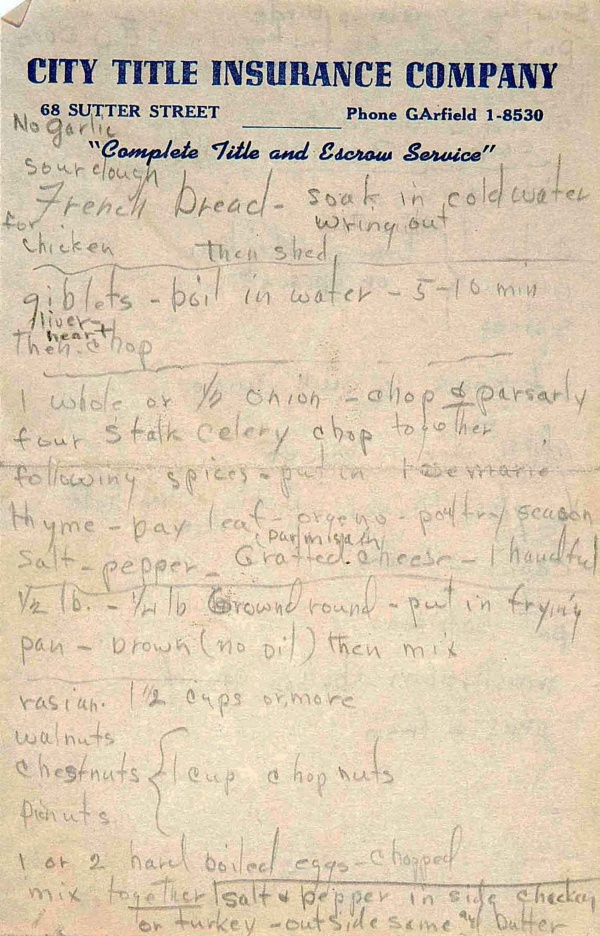 CITY TITLE INSURANCE COMPANY
68 SUTTER STREET Phone GArfield 1-8530
No Garlic
"Complete Title and Escrow Service"
sourdough
French bread - soak in cold water
for wring out
chicken then shed
giblets - boil in water - 5-10 min
liver -
heart
then chop
1 whole or 1/2 onion - chop & parsarly
four stalk celery chop together
following spices - put in rosemarie
thyme - bay leaf - orgeno - poultry season
(parmisain)
salt - pepper - Gratted cheese - 1 handful
1/2 lb. - 1/4 lb Ground round - put in frying
pan - brown (no oil) then mix
rasian. 1 1/2 cups or more
walnuts
chestnuts { 1 cup chop nuts
pinuts
1 or 2 hard boiled eggs - chopped
mix together salt & pepper in side chicken
or turkey - outside same and butter